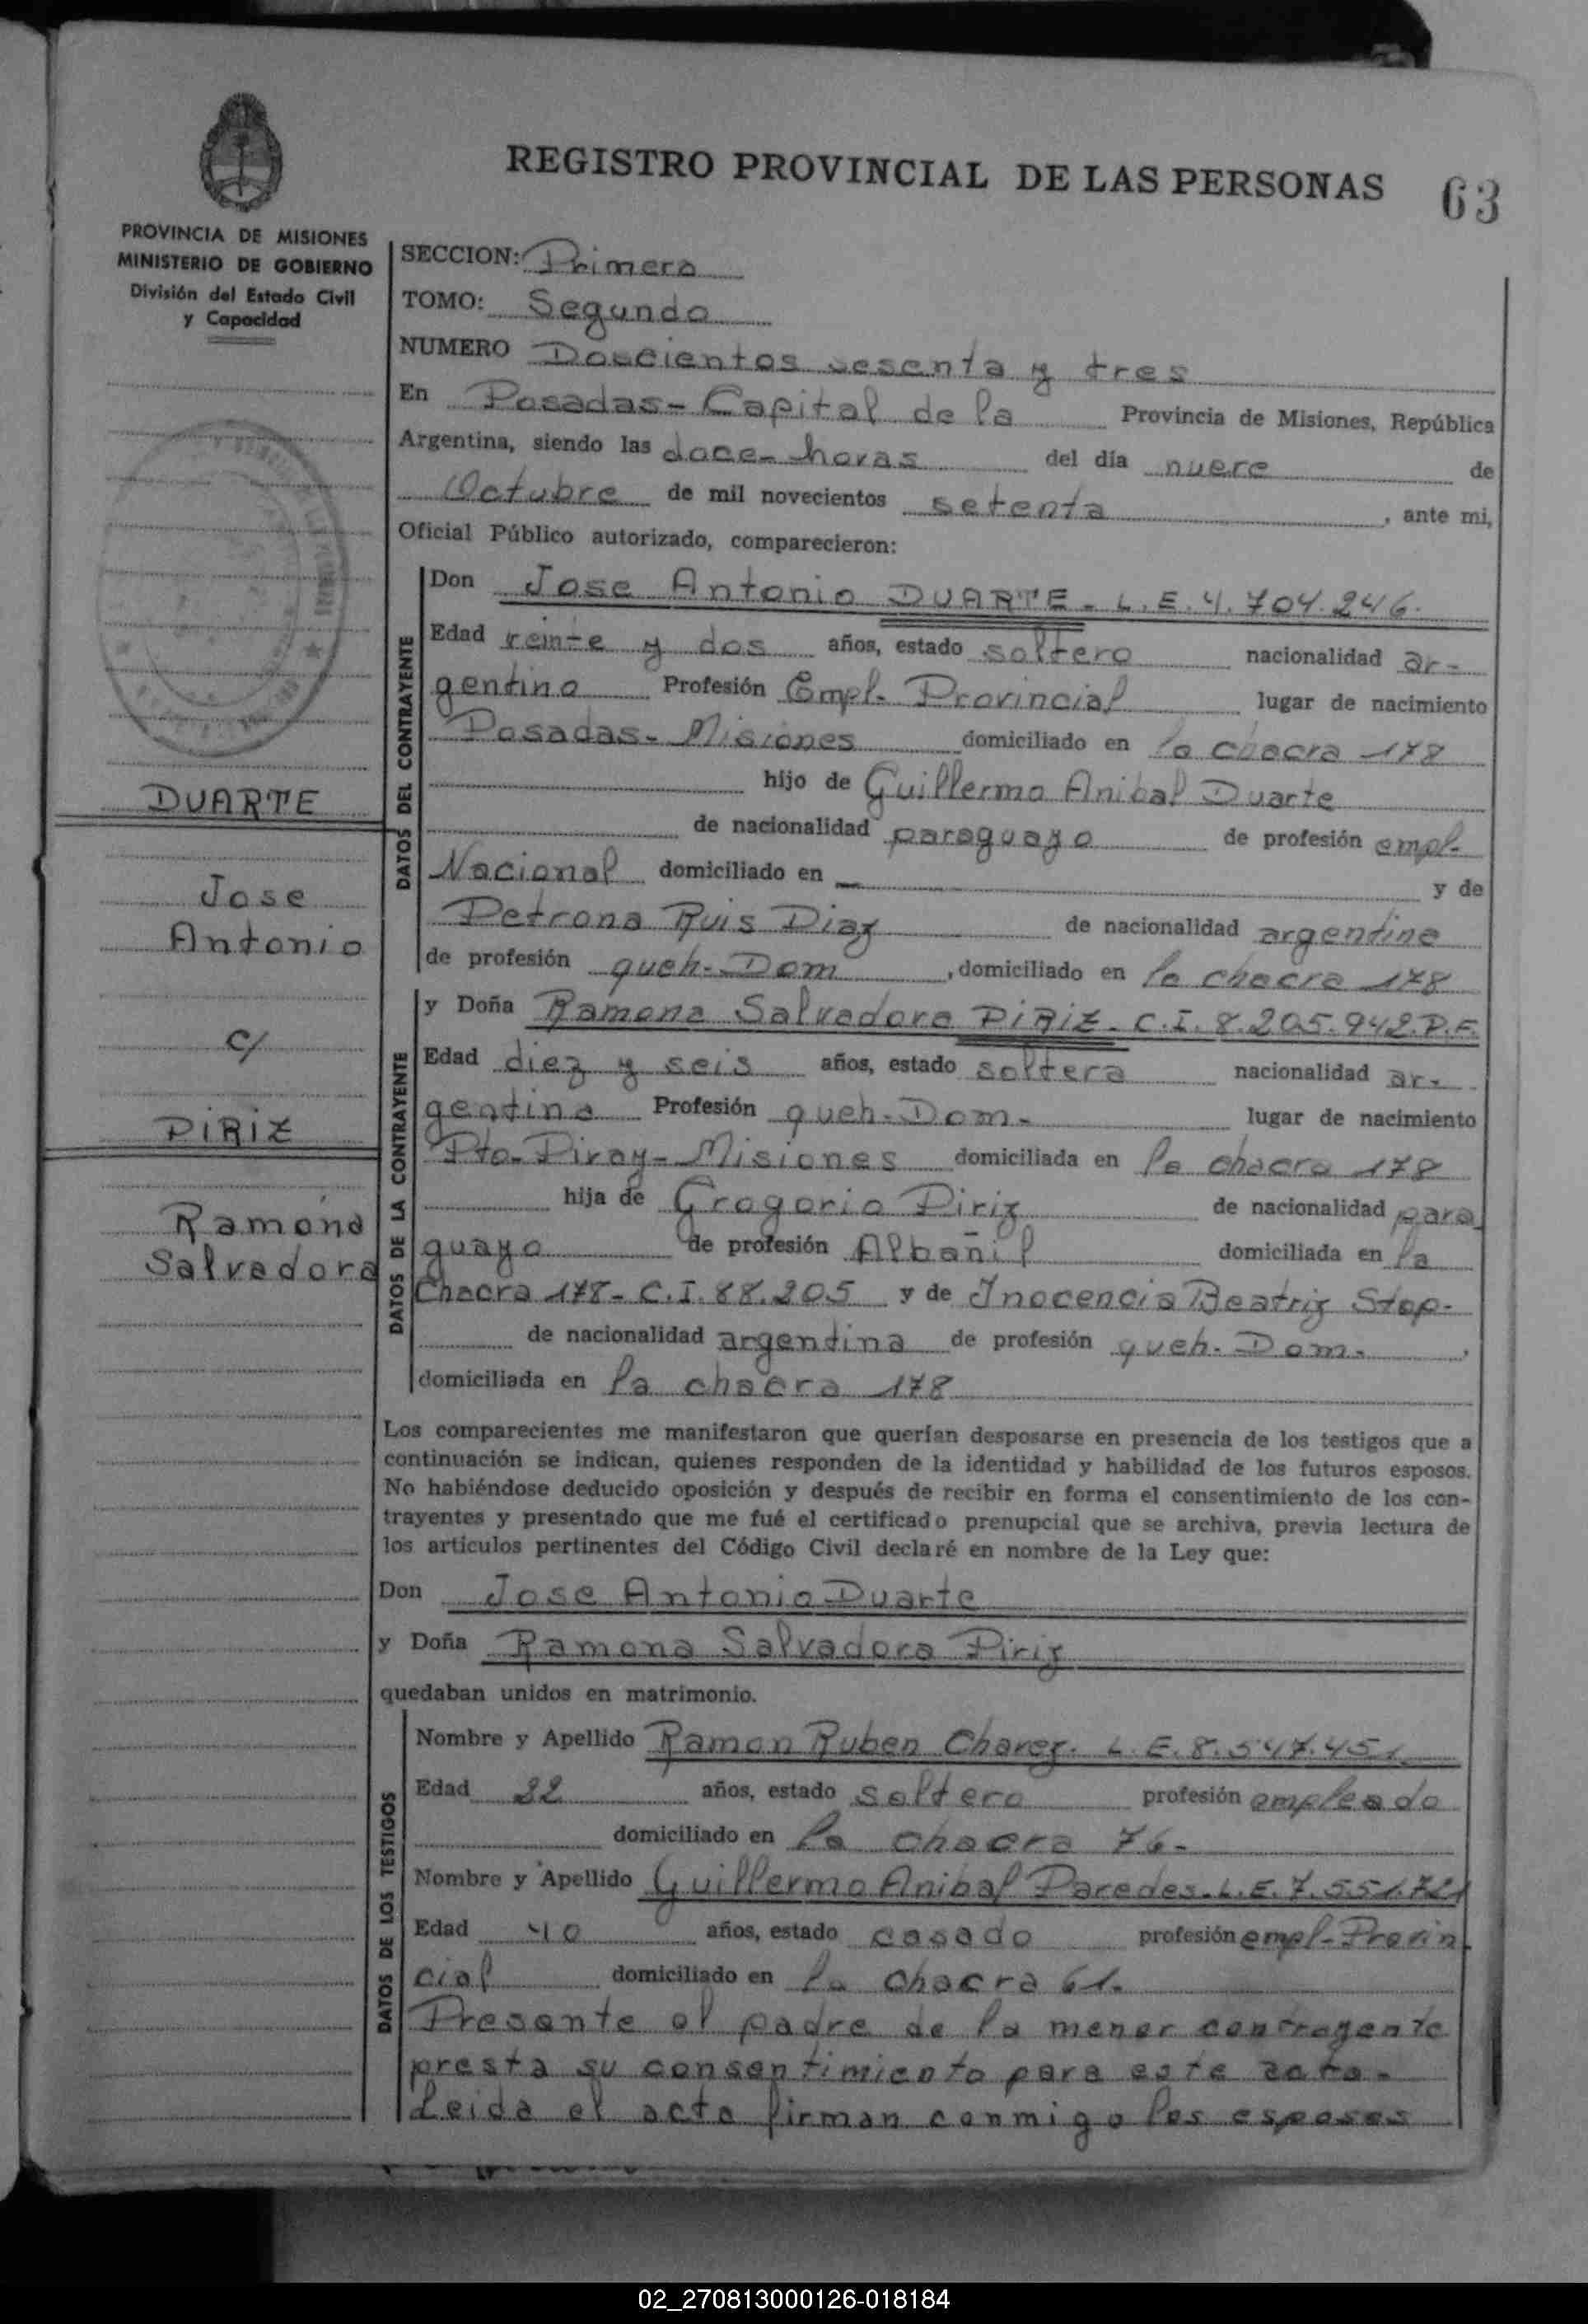 REGISTRO PROVINCIAL DE LAS PERSONAS 63
PROVINCIA DE MISIONES
MINISTERIO DE GOBIERNO
División del Estado Civil
y Capacidad
DUARTE
Jose
Antonio
c/
PIRIZ
Ramona
Salvadora
SECCION: Primera
TOMO: Segundo
NUMERO Doscientos sesenta y tres
En Posadas- Capital de la Provincia de Misiones, República
Argentina, siendo las doce- horas del día nueve de
Octubre de mil novecientos setenta, ante mi,
Oficial Público autorizado, comparecieron:
DATOS DEL CONTRAYENTE
Don Jose Antonio DUARTE - L.E.4.704.246.
Edad veinte y dos años, estado soltero nacionalidad ar-
gentino Profesión Empl- Provincial lugar de nacimiento
Posadas- Misiones domiciliado en la chacra 178
hijo de Guillermo Anibal Duarte
de nacionalidad paraguayo de profesión empl-
Nacional domiciliado en — y de
Petrona Ruis Diaz de nacionalidad argentina
de profesión queh-Dom, domiciliado en la chacra 178
DATOS DE LA CONTRAYENTE
y Doña Ramona Salvadora PIRIZ - C.I. 8.205.942.P.F.
Edad diez y seis años, estado soltera nacionalidad ar-
gentina Profesión queh-Dom- lugar de nacimiento
Pto-Piray-Misiones domiciliada en la chacra 178
hija de Gregorio Piriz de nacionalidad para
guayo de profesión Albañil domiciliada en la
Chacra 178- C.I. 88.205 y de Inocencia Beatriz Stop-
de nacionalidad argentina de profesión queh-Dom-,
domiciliada en la chacra 178
Los comparecientes me manifestaron que querían desposarse en presencia de los testigos que a
continuación se indican, quienes responden de la identidad y habilidad de los futuros esposos.
No habiéndose deducido oposición y después de recibir en forma el consentimiento de los con-
trayentes y presentado que me fué el certificado prenupcial que se archiva, previa lectura de
los artículos pertinentes del Código Civil declaré en nombre de la Ley que:
Don Jose Antonio Duarte
y Doña Ramona Salvadora Piriz
quedaban unidos en matrimonio.
DATOS DE LOS TESTIGOS
Nombre y Apellido Ramon Ruben Chavez- L.E.8.547.451
Edad 22 años, estado soltero profesión empleado
domiciliado en la chacra 76-
Nombre y Apellido Guillermo Anibal Paredes-L.E.7.551.721
Edad 40 años, estado casado profesión empl-Provin
cial domiciliado en la chacra 61-
Presente el padre de la menor contrayente
presta su consentimiento para este acto-
Leida el acta firman conmigo los esposos
02_270813000126-018184